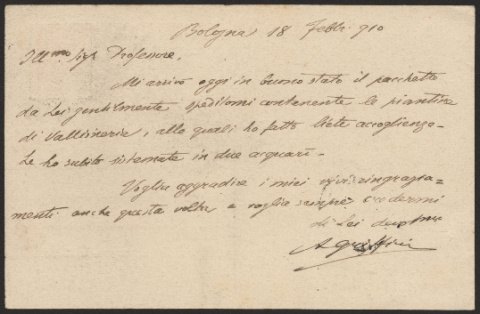 Bologna 18 Febb. 910
Ill.mo Sigr Professore,
Mi arrivò oggi in buono stato il pacchetto
da Lei gentilmente speditomi contenente le piantine
di Vallisneria, alle quali ho fatto liete accoglienze.
Le ho subito sistemate in due acquari.
Voglia aggradire i miei vivi ringrazia=
menti anche questa volta e voglia sempre credermi
di Lei devmo
A Griffini